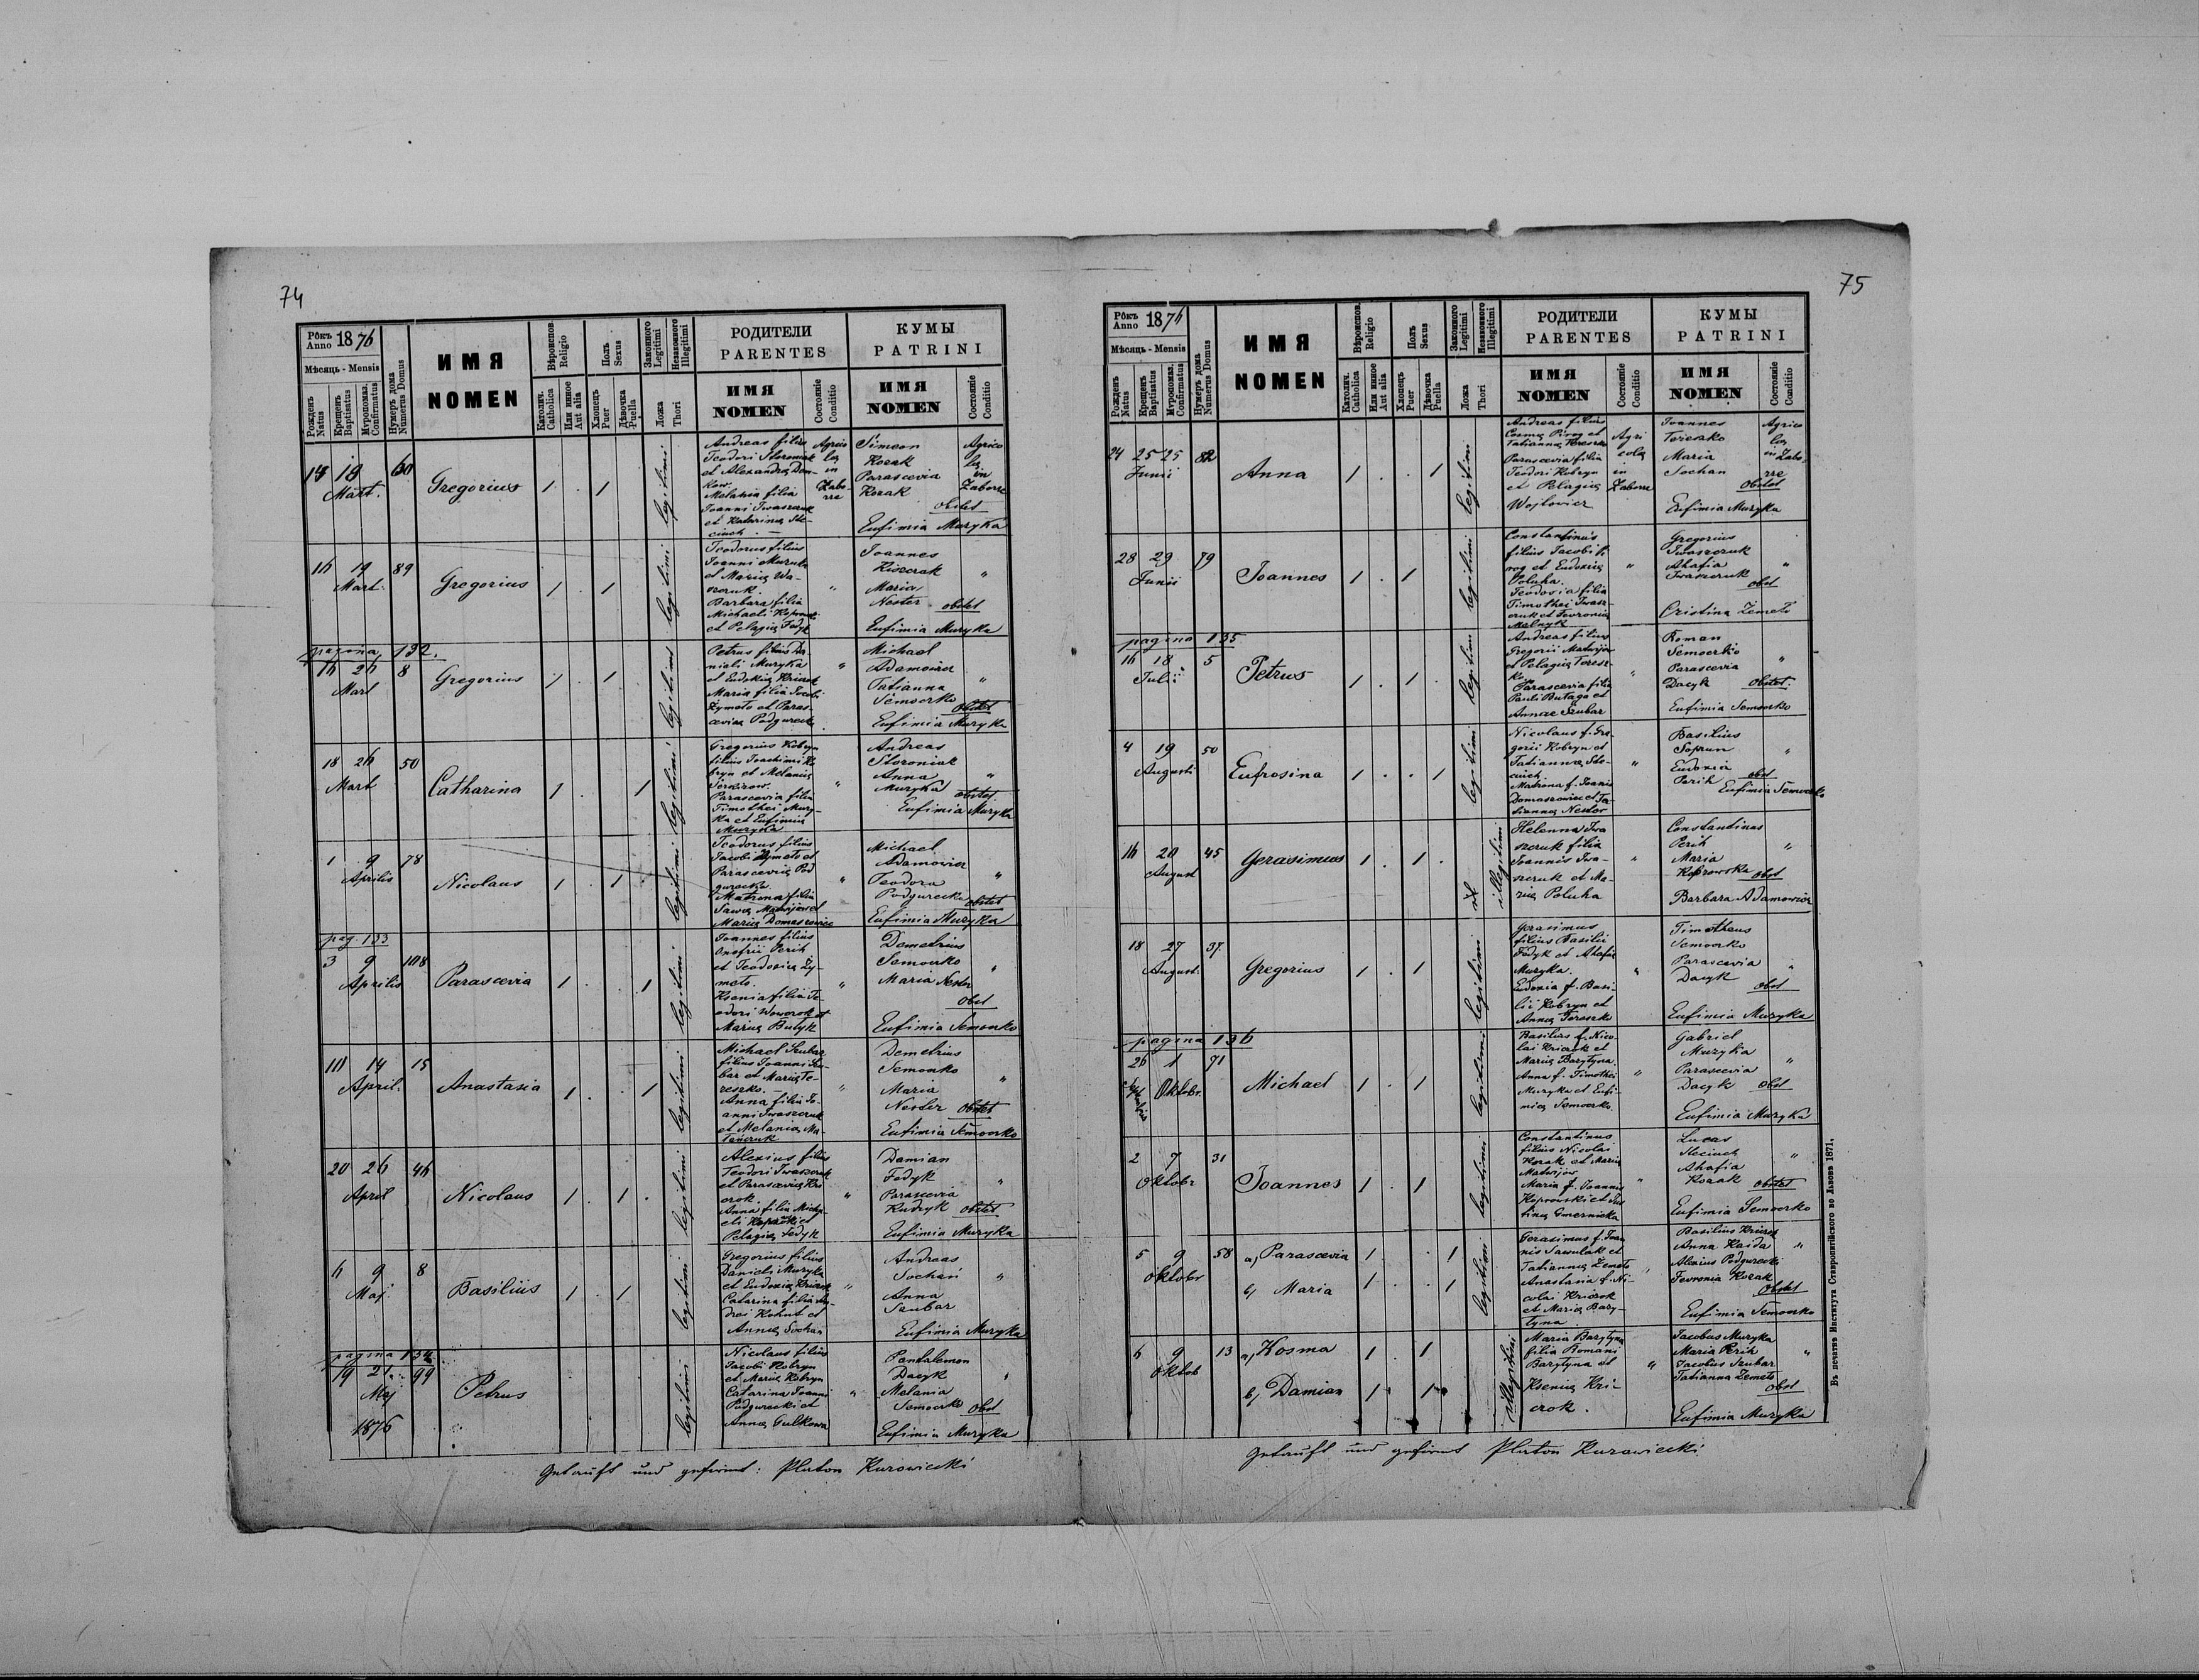 74
Рôкъ Anno 1876
Мѣсяць - Mensis
Рожденъ Natus
Крещенъ Baptisatus
Мѵропомаз. Confirmatus
Нумеръ дома Numerus Domus
ИМЯ
NOMEN
Вѣроиспов. Religio
Католич. Catholica
Или инное Aut alia
Полъ Sexus
Хлопець Puer
Дѣвочка Puella
Законного Legitimi
Незаконного Illegitimi
Ложа Thori
РОДИТЕЛИ
PARENTES
ИМЯ
NOMEN
Состояніе Conditio
КУМЫ
PATRINI
ИМЯ
NOMEN
Состояніе Conditio
19
Mart.
Gregorius
1 . 1
legitimi
Andreas filius
Teodori Storoniak
et Alexandra
Melania filia
Joanni Iwaszczuk
et Katarina Ste-
cinch
Agrico
la
in
Zabo-
rze
Simeon
Kozak
Parascevia
Kozak
obstet
Eufimia Muzyka
Agrico
la
in
Zaborze
16 19 89
Mart.
Gregorius
1 . 1
legitimi
Teodorus filius
Joanni Muzyka
et Maria
Barbara filia
Michaeli
et Pelagia Fedyk
"
Joannes
Maria
Nester obstet
Eufimia Muzyka
"
pagina 132.
16 26 8
Mart
Gregorius
1 . 1
legitimi
Petrus filius Da-
nieli Muzyka
et Eudokia Kriczok
Maria filia Jacobi
Zymeto et Paras-
cevia Podgurecka
"
Michael
Adamowicz
Tatianna
Semoczko
obstet
Eufimia Muzyka
"
18 26 50
Mart
Catharina
1 . 1
legitimi
Gregorius Kobryn
filius Joachimi Ko
bryn et Melania
Parascevia filia
Timothei Muzy-
ka et Eufimia
Muzyka
"
Andreas
Storoniak
Anna
Muzyka obstet
Eufimia Muzyka
"
1 9 78
Aprilis
Nicolaus
1 . 1
legitimi
Teodorus filius
Jacobi Zymeto et
Parascevia Pod
gurecka
Matrona filia
Sawa Matwijow et
Maria Domaszowicz
"
Michael
Adamowicz
Teodora
Podgurecka obstet
Eufimia Muzyka
"
pag. 133
3 9 108
Aprilis
Parascevia
1 . 1
legitimi
Joannes filius
Onofrii Perih
et Teodosia Zy-
meto.
Ksenia filia Te-
odori Woworok et
Maria Butyk
"
Demetrius
Semoczko
Maria Nester
obst
Eufimia Semoczko
"
10 14 15
April.
Anastasia
1 . 1
legitimi
Michael Szubar
filius Joanni Szu-
bar et Maria Te-
reszko.
Anna filia Jo-
anni Iwaszczuk
et Melania
"
Demetrius
Semoczko
Maria
Nester obstet
Eufimia Semoczko
"
20 26 46
April
Nicolaus
1 . 1 .
legitimi
Alexius filius
Teodori Iwaszczuk
et Parascevia Kri
czok
Anna filia Micha-
eli
Pelagia Fedyk
"
Damian
Fedyk
Parascevia
Kudryk obstet
Eufimia Muzyka
"
6 9 8
Maj.
Basilius
1 . 1
legitimi
Gregorius filius
Danieli Muzyka
et Eudoxia Kriczok
Catarina filia An-
drei Kohut et
Anna Sochan
"
Andreas
Sochan
Anna
Szubar
Eufimia Muzyka
"
pagina 134
19 21 99
Maj
1876
Petrus
legitimi
Nicolaus filius
Jacobi Kobryn
et Maria Kobryn
Catarina Joanni
Podgurecki et
Anna Gulkowa
"
Pantalemon
Dacyk
Melania
Semoczko obst
Eufimia Muzyka
"
Getauft und gefirmt: Platon Kurowiecki
75
Рôкъ Anno 1876
Мѣсяць - Mensis
Рожденъ Natus
Крещенъ Baptisatus
Мѵропомаз. Confirmatus
Нумеръ дома Numerus Domus
ИМЯ
NOMEN
Вѣроиспов. Religio
Католич. Catholica
Или инное Aut alia
Полъ Sexus
Хлопець Puer
Дѣвочка Puella
Законного Legitimi
Незаконного Illegitimi
Ложа Thori
РОДИТЕЛИ
PARENTES
ИМЯ
NOMEN
Состояніе Conditio
КУМЫ
PATRINI
ИМЯ
NOMEN
Состояніе Conditio
24 25 25 82
Junii
Anna
1 . . 1
legitimi
Andreas filius
Cosma Pirog et
Tatianna Tereszko
Parascevia filia
Teodori Kobryn
et Pelagia
Wojtowicz
Agri
cola
in
Zaborze
Joannes
Tereszko
Maria
Sochan
obstet
Eufimia Muzyka
Agrico
la
in Zabo-
rze
28 29 79
Junii
Joannes
1 . 1
legitimi
Constantinus
filius Jacobi Pi
rog et Eudoxia
Poluha.
Teodosia filia
Timothei Iwasz-
czuk et Fevronia
Melnyk
"
Gregorius
Iwaszczuk
Ahafia
Iwaszczuk
obst
Cristina Zemeto
"
pagina 135
16 18 5
Julii
Petrus
1 . 1
legitimi
Andreas filius
Gregorii Matwijow
et Pelagia Teresz-
ko
Parascevia filia
Pauli Butaga et
Annae Szubar
"
Roman
Semoczko
Parascevia
Dacyk obstet.
Eufimia Semoczko
"
4 19 50
Augusti
Eufrosina
1 . . 1
legitimi
Nicolaus f. Gre-
gorii Kobryn et
Tatianna Ste-
cinch
Matrona f. Joannis
Domaszowicz et Ta-
tianna Nester
"
Basilius
Soprun
Eudoxia
Perih obst
Eufimia Semoczko
"
16 20 45
August
Gerasimus
1 . 1 .
illegitimi
Helenna Iwa
szczuk filia
Joannis Iwa-
szczuk et Ma-
ria Poluha
"
Constantinus
Perih
Maria
Koprowska obst
Barbara Adamowicz
"
18 27 37.
August.
Gregorius
1 . 1
legitimi
Gerasimus
filius Basilii
Fedyk et Ahafia
Muzyka.
Eudoxia f. Basi-
lii Kobryn et
Anna Tereszko
"
Timotheus
Semoczko
Parascevia
Dacyk
obst
Eufimia Muzyka
"
pagina 136
26 1 71
Oktobr.
Michael
1 . 1
legitimi
Basilius f. Nico-
lai Kriczok et
Maria Barytyna
Anna f. Timothei
Muzyka et Eufi-
mia Semoczko.
"
Gabriel
Muzyka
Parascevia
Dacyk obst
Eufimia Muzyka
"
2 7 31
Oktobr
Joannes
1 . 1
legitimi
Constantinus
filius Nicolai
Kozak et Maria
Matwijow
Maria f. Joannis
Koprowski et Jus
tina
"
Lucas
Stecinch
Ahafia
Kozak obstet
Eufimia Semoczko
"
5 9 58
Oktobr
a, Parascevia
1 . 1
b, Maria
1 . 1
legitimi
Gerasimus f. Joan
nis Sawulak et
Tatianna Zemeto
Anastasia f. Ni-
colai Kriczok
et Maria Bary-
tyna
"
Basilius Kriczok
Anna Kaida
Alexius Podgurecki
Fevronia Kozak
obstet
Eufimia Semoczko
"
6 9 13
Oktob
a, Kosma
1 . 1
b, Damian
1 . 1
illegitimi
Maria Barytyna
filia Romani
Barytyna et
Ksenia Kri-
czok.
"
Jacobus Muzyka
Maria Perih
Jacobus Szubar
Tatianna Zemeto
obst
Eufimia Muzyka
"
Getauft und gefirmt Platon Kurowiecki
Въ печатни Института Ставропигійского во Львовѣ 1871.